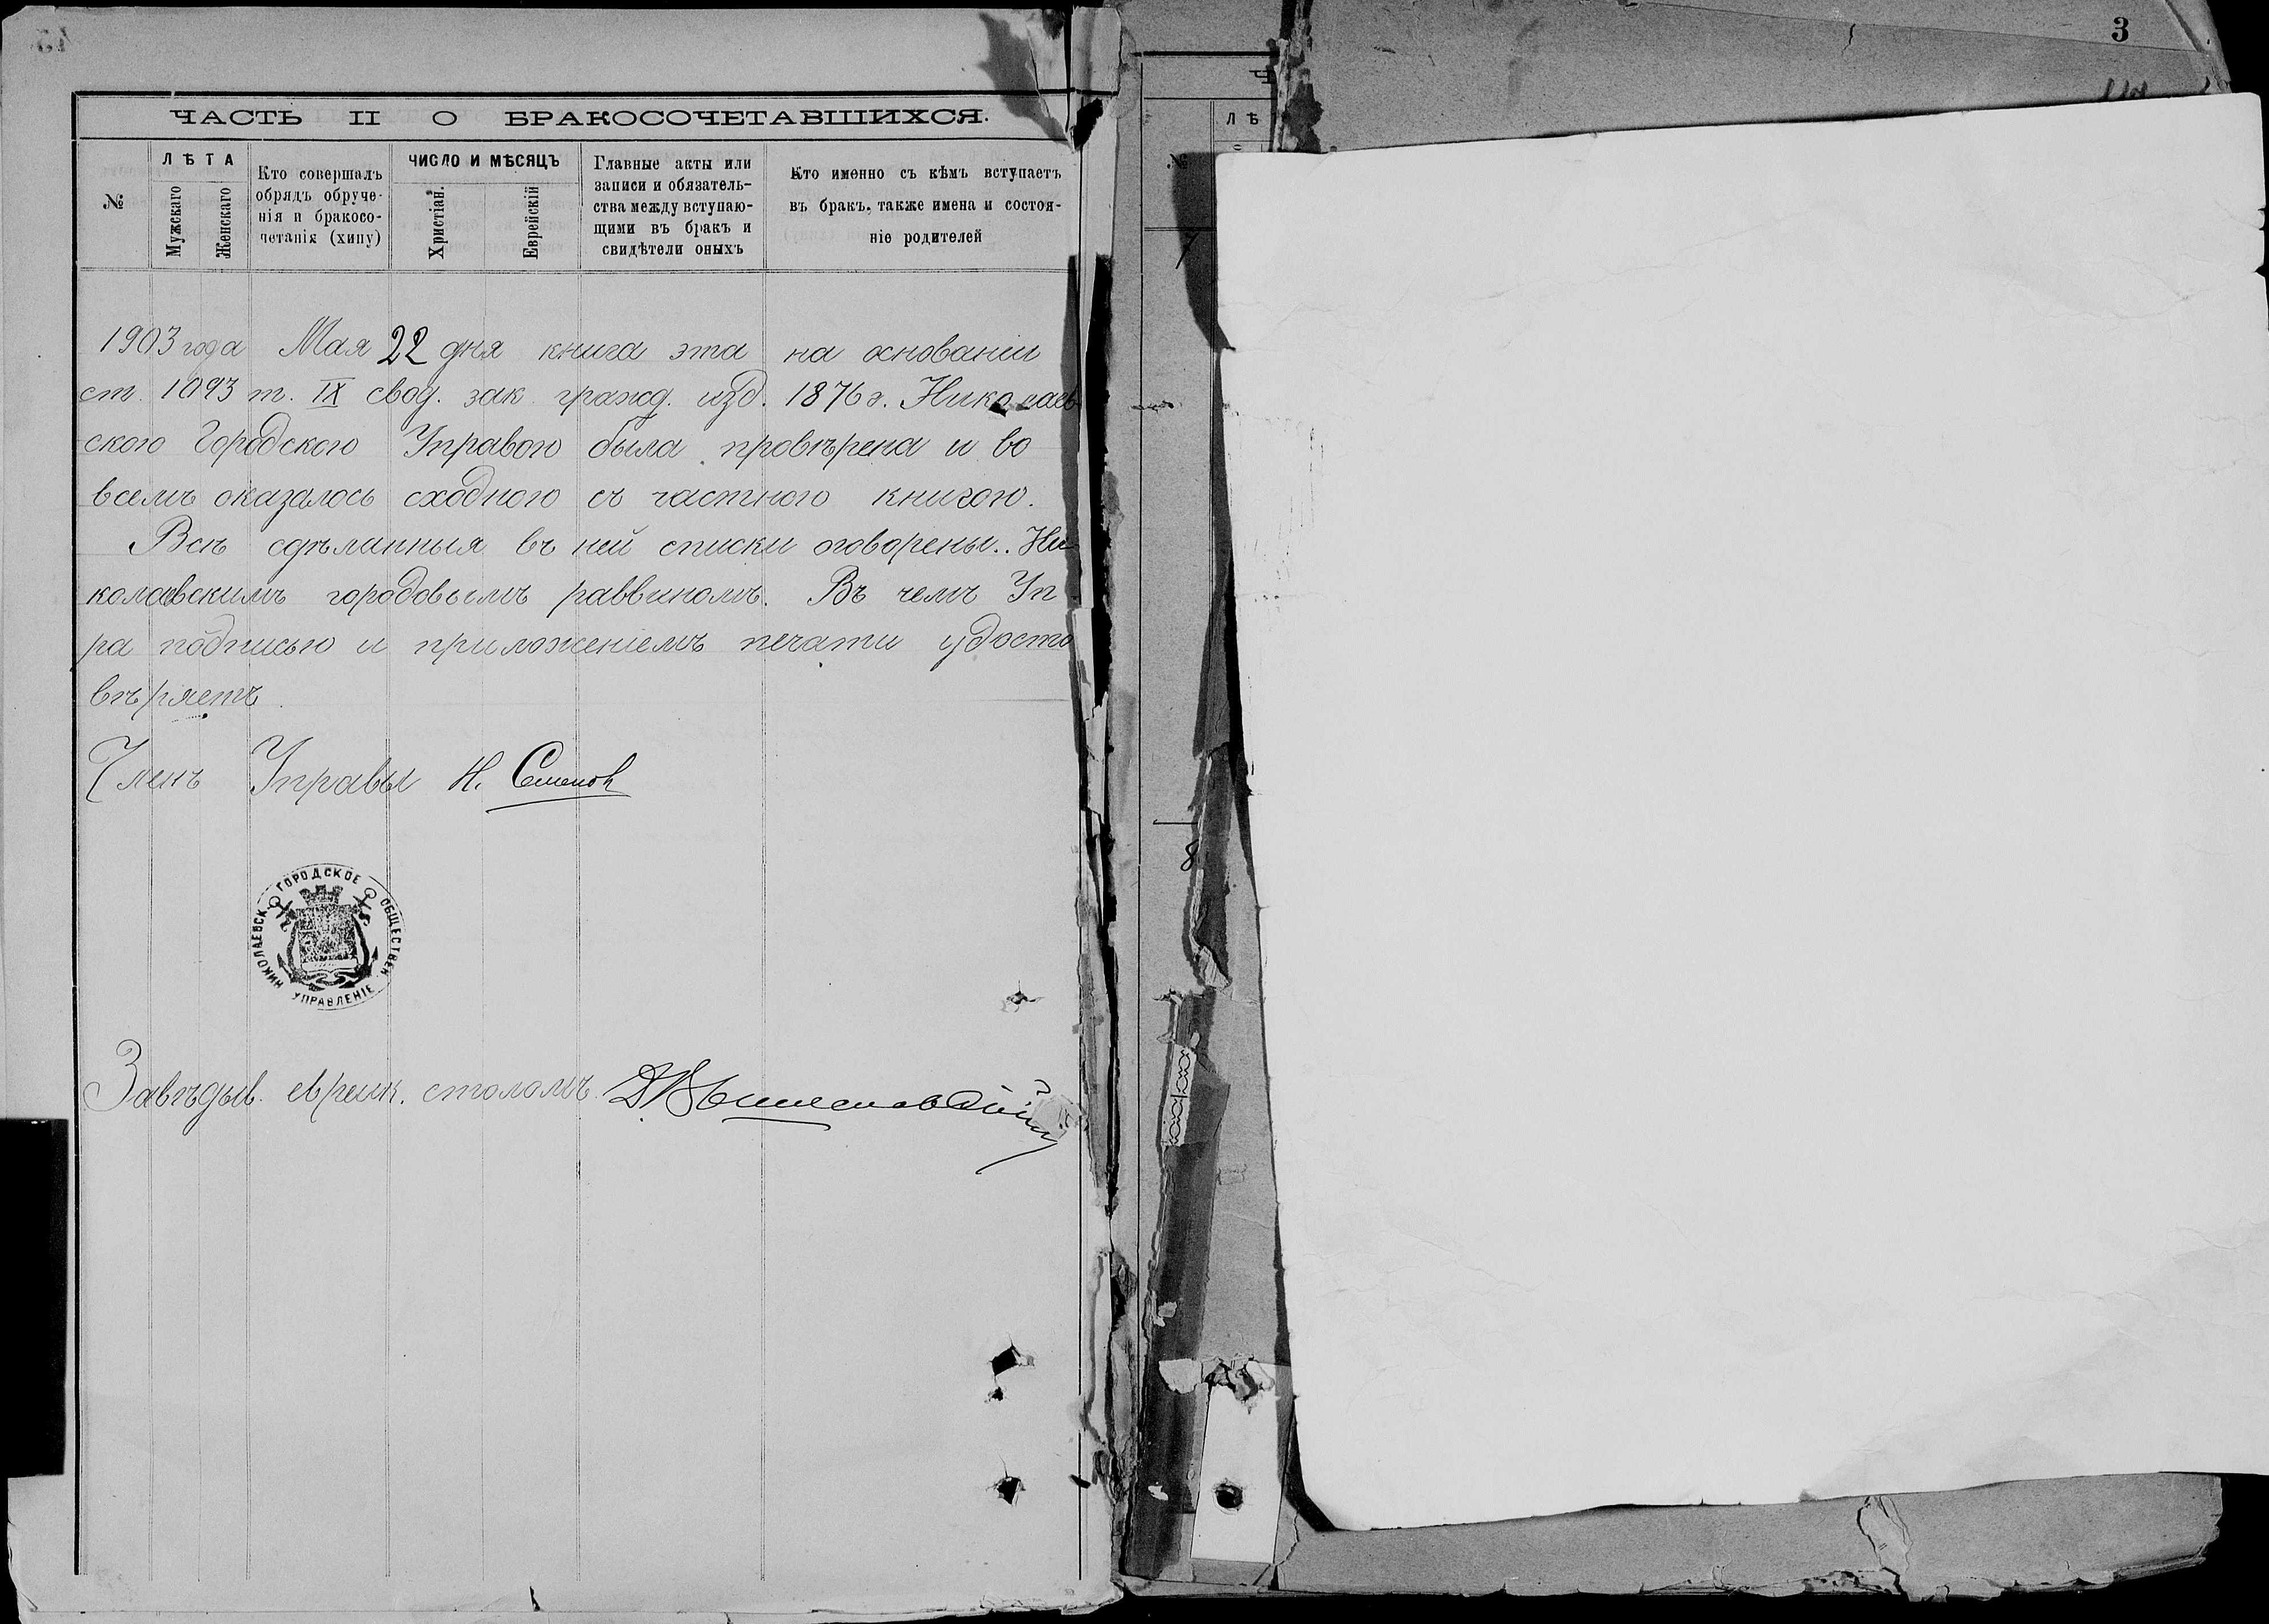 ЧАСТЬ II О БРАКОСОЧЕТАВШИХСЯ.
№
ЛѢТА
Мужскаго
Женскаго
Кто совершалъ
обрядъ обруче-
нія и бракосо-
четанія (хипу)
ЧИСЛО И МѢСЯЦЪ
Христіан.
Еврейскій
Главные акты или
записи и обязатель-
ства между вступаю-
щими въ бракъ и
свидѣтели оныхъ
Кто именно съ кѣмъ вступаетъ
въ бракъ, также имена и состоя-
ніе родителей
1903 года Мая 22 дня книга эта на основаніи
ст. 1093 т. IX свод. зак. гражд. изд. 1876 г. Николаев
ского Городского Управою была провѣрена и во
всемъ оказалось сходною съ частного книгою.
Всѣ сдѣланныя въ ней списки оговорены.. Ни-
колаевскимъ городовымъ раввиномъ. Въ чемъ Уп
ра подписью и приложеніемъ печати удосто
вѣряетъ.
Членъ Управы Н. Семенов
НИКОЛАЕВСК. ГОРОДСКОЕ ОБЩЕСТВЕН. УПРАВЛЕНІЕ
Завѣдыв. евреиск. столомъ
3
ЛѢ
№
7
8